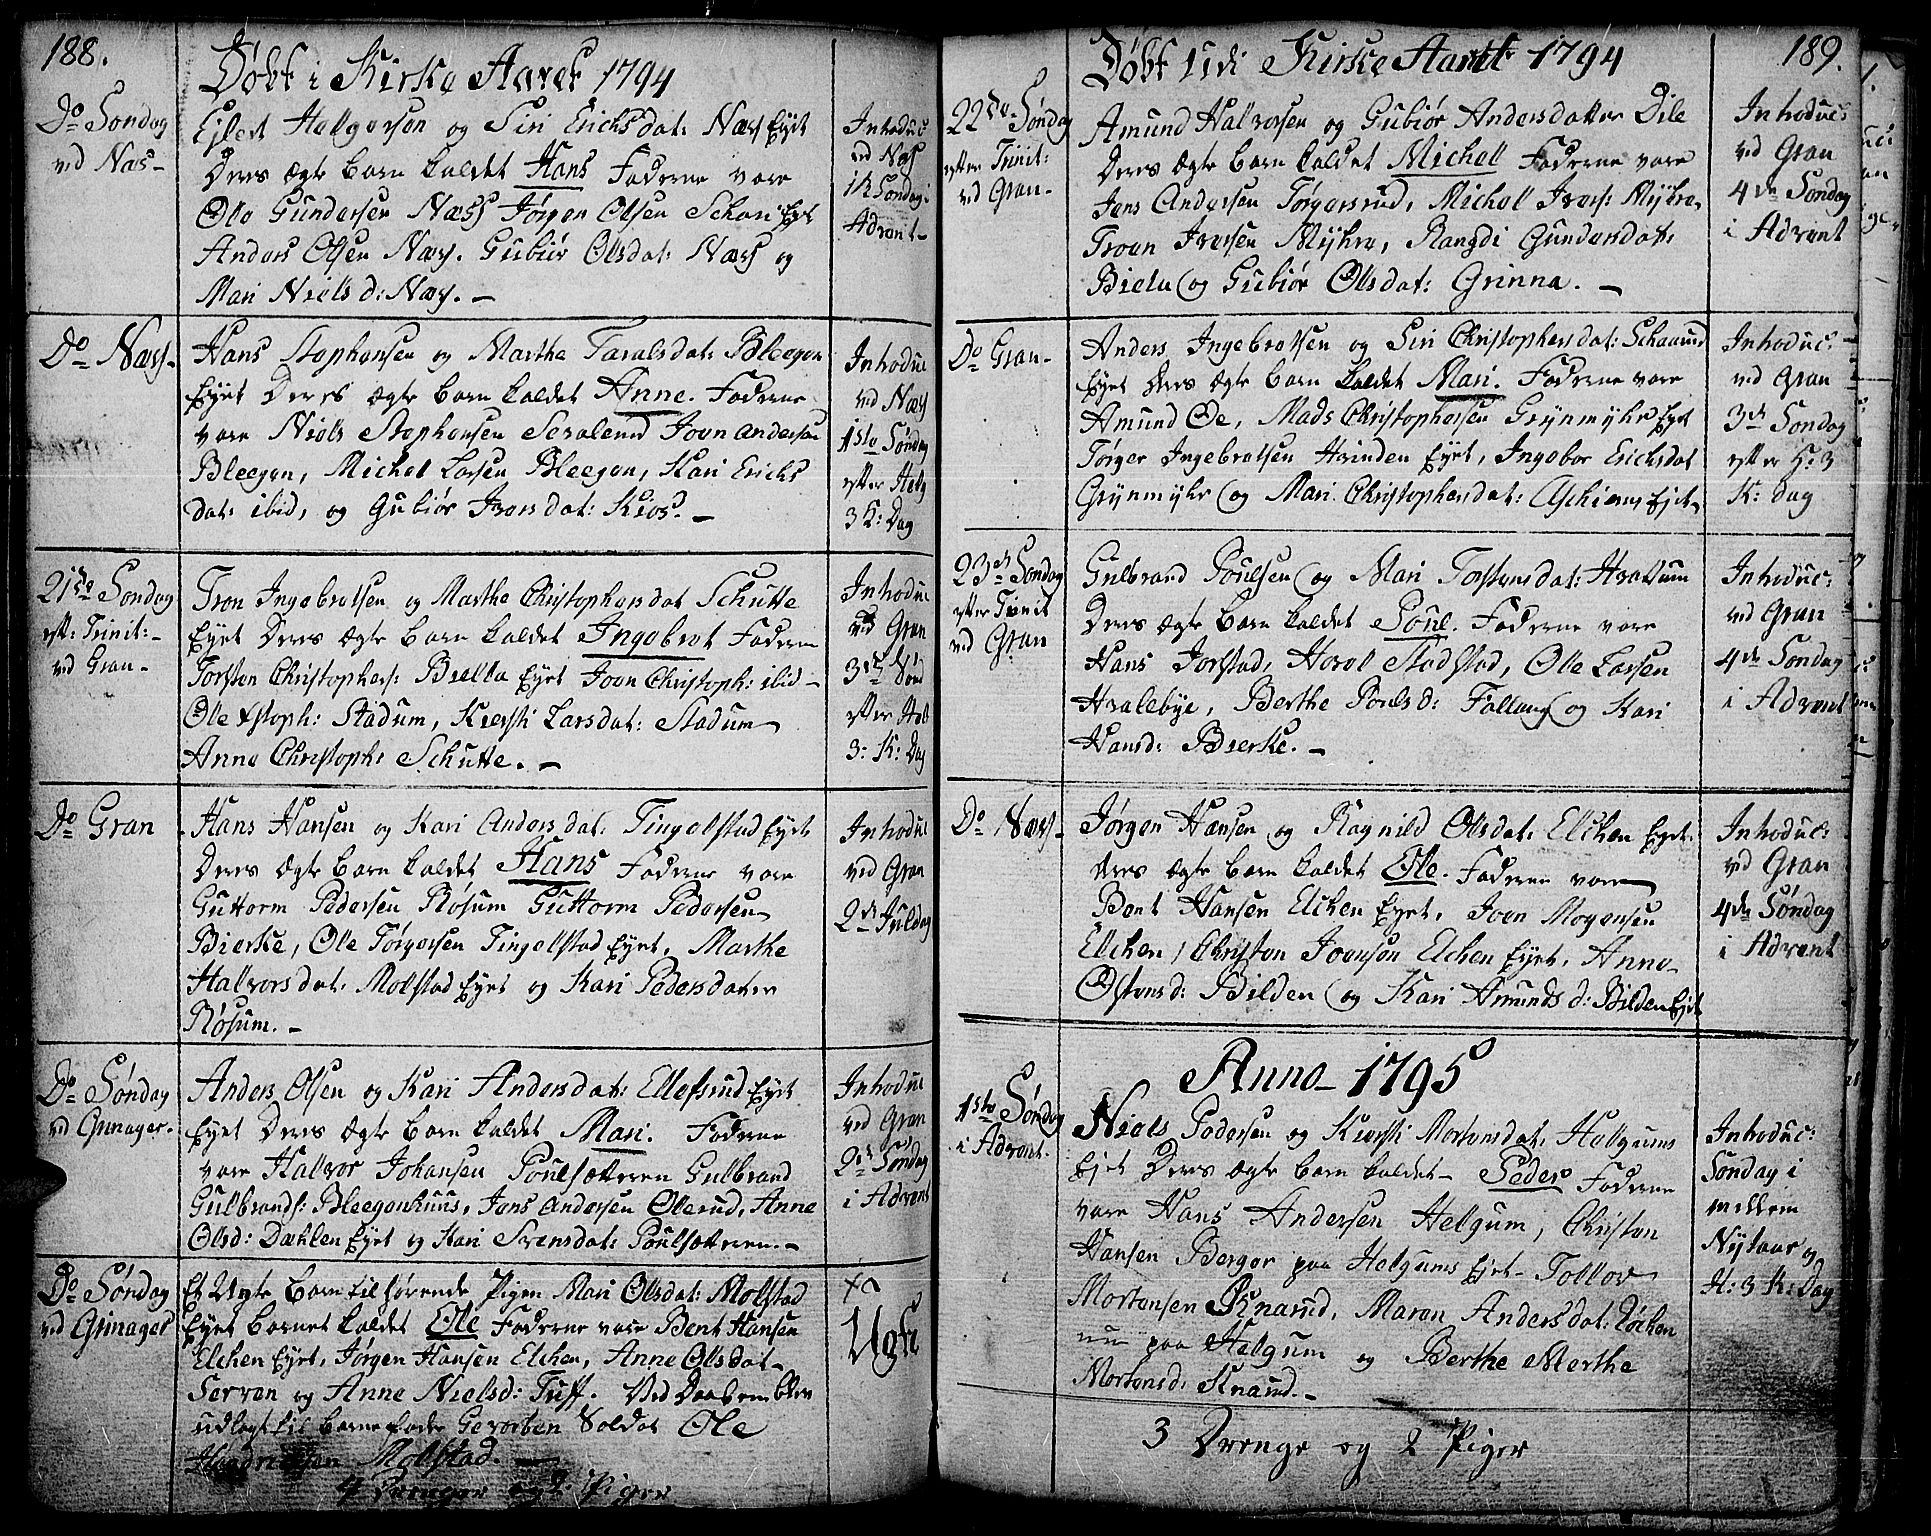 188.
Døbt i Kirke Aaret 1794
Do Søndag
ved Næs-
Ejlert Helgersen og Siri Erichsdat: Næs Eyet
Deres ægte barn kaldet Hans Fadderne vare
Ole Gundersen Næss Jørgen Olsen Eyet
Anders Olsen Næss. Gubiør Olsdat: Næss og
Mari Niels d: Næss. -
Introduc
ved Næs
Søndag i
Advent-
Do Næss-
Hans Stephensen og Marthe Taralsdat: Bleegen
Eyet Deres ægte barn kaldet Anne. Fadderne
vare Niels Stephensen Joen Andersen
Bleegen, Michel Larsen Bleegen, Kari Erichs
dat: ibid, og Gubiør Ivers dat: Kios. -
Introduc
ved Næss
1ste Søndag
efter Helg
3 K: Dag
21de Søndag
eft: Trinit:-
ved Gran-
Tron Ingebretsen og Marthe Christophersdat Schutte
Eyet Deres ægte barn kaldet Ingebret Fadderne
Torsten Christophers: Biella Eyet Joen Christoph: ibid-
Ole Xstoph: Stadum, Kiersti Larsdat: Stadum
Anne Christoph: Schutte. -
Introduc
ved Gran
3de Sønd
efter Hel
3: K: Dag
Do Gran
Hans Hansen og Kari Anders dat: Tingelstad Eyet
Deres ægte barn kaldet Hans Fadderne vare
Guttorm Pedersen Røsum Guttorm Pedersen
Bierke, Ole Torgersen Tingelstad Eyet, Marthe
Halvors dat: Molstad Eyet og Kari Pedersdater
Røsum. -
Introduc
ved Gran
2de Juledag
Do Søndag
ved Grinager.
Anders Olsen og Kari Andersdat: Ellefsrud Eyet
Eyet Deres ægte barn kaldet Mari. Fadderne
vare Halvor Johansen Poulsætteren Gulbrand
Gulbrands: Bleegenhuus, Jens Andersen Ølerud, Anne
Olsd: Dæhlen Eyet og Kari Svensdat: Poulsætteren.-
Introduc
ved Gran
2de Søndag
i Advent
Do Søndag
ved Grinager
Et Uægte barn tilhørende Pigen Mari Olsdat: Molstad
Eyet barnet kaldet Ole Fadderne vare Bent Hansen
Elchen Eyet, Jørgen Hansen Elchen, Anne Olsdat-
Serven og Anne Nielsd: Tuff. Ved Daaben blev
udlagt til barnefader Gevorben Soldat Ole
Molstad. -
Uægte
4 Drenger og 2 Piger
189.
Døbt Udi Kirke Aaret 1794
22de Søndag
efter Trinit:
ved Gran-
Amund Halvorsen og Gubiør Andersdatter Dile
Deres ægte barn kaldet Michell Fadderne vare
Jens Andersen Torgersrud, Michell Ivers: Myhre,
Troen Iversen Myhre, Rangdi Gundersdat:
Biela og Gubiør Olsdat: Grinna. -
Introduc:
ved Gran
4de Søndag
i Advent
Do Gran-
Anders Ingebretsen og Siri Christophersdat: Schaarud
Eyet Deres ægte barn kaldet Mari. Fadderne vare
Amund Øe, Mads Christophersen Grynmyhr Eyet
Torger Ingebretsen Hvinden Eyet, Ingebor Erichsdat
Grynmyhr og Mari Christophersdat: Aschiem Ejet
Introduc:
ved Gran
3de Søndag
efter H: 3
K: Dag
23de Søndag
efter Trinit
ved Gran
Gulbrand Poulsen og Mari Torstensdat: Hvalsum
Deres ægte barn kaldet Poul. Fadderne vare
Hans Jorstad, Harol Stadstad, Ole Larsen
Hvalebye, Berthe Pouls d: Fallang og Kari
Hansd: Bierke. -
Introduc:
ved Gran
4de Søndag
i Advent
Do Næss-
Jørgen Hansen og Ragnild Olsdat: Elchen Eyet
deres ægte barn kaldet Ole. Fadderne vare
Bent Hansen Elchen Eyet, Joen Mogensen
Elchen, Christen Joensen Elchen Eyet, Anne
Ostensd: Bilden og Kari Amunds d: Bilden Ejet
Introduc:
ved Gran
4de Søndag
i Advent
Anno 1795
1ste Søndag
i Advent.
Niels Pedersen og Kiersti Mortensdat: Helgums
Ejet Deres ægte barn kaldet- Peder Fadderne
vare Hans Andersen Helgum, Christen
Hansen Berger paa Helgums Ejet- Tollov
Mortensen Knarud, Maren Andersdat: Løchen
paa Helgum og Berthe Merthe
Mortensd: Knarud. -
Introduc:
Søndag i
mellem
Nytaar og
H: 3 K: Dag
3 Drenge og 2 Piger